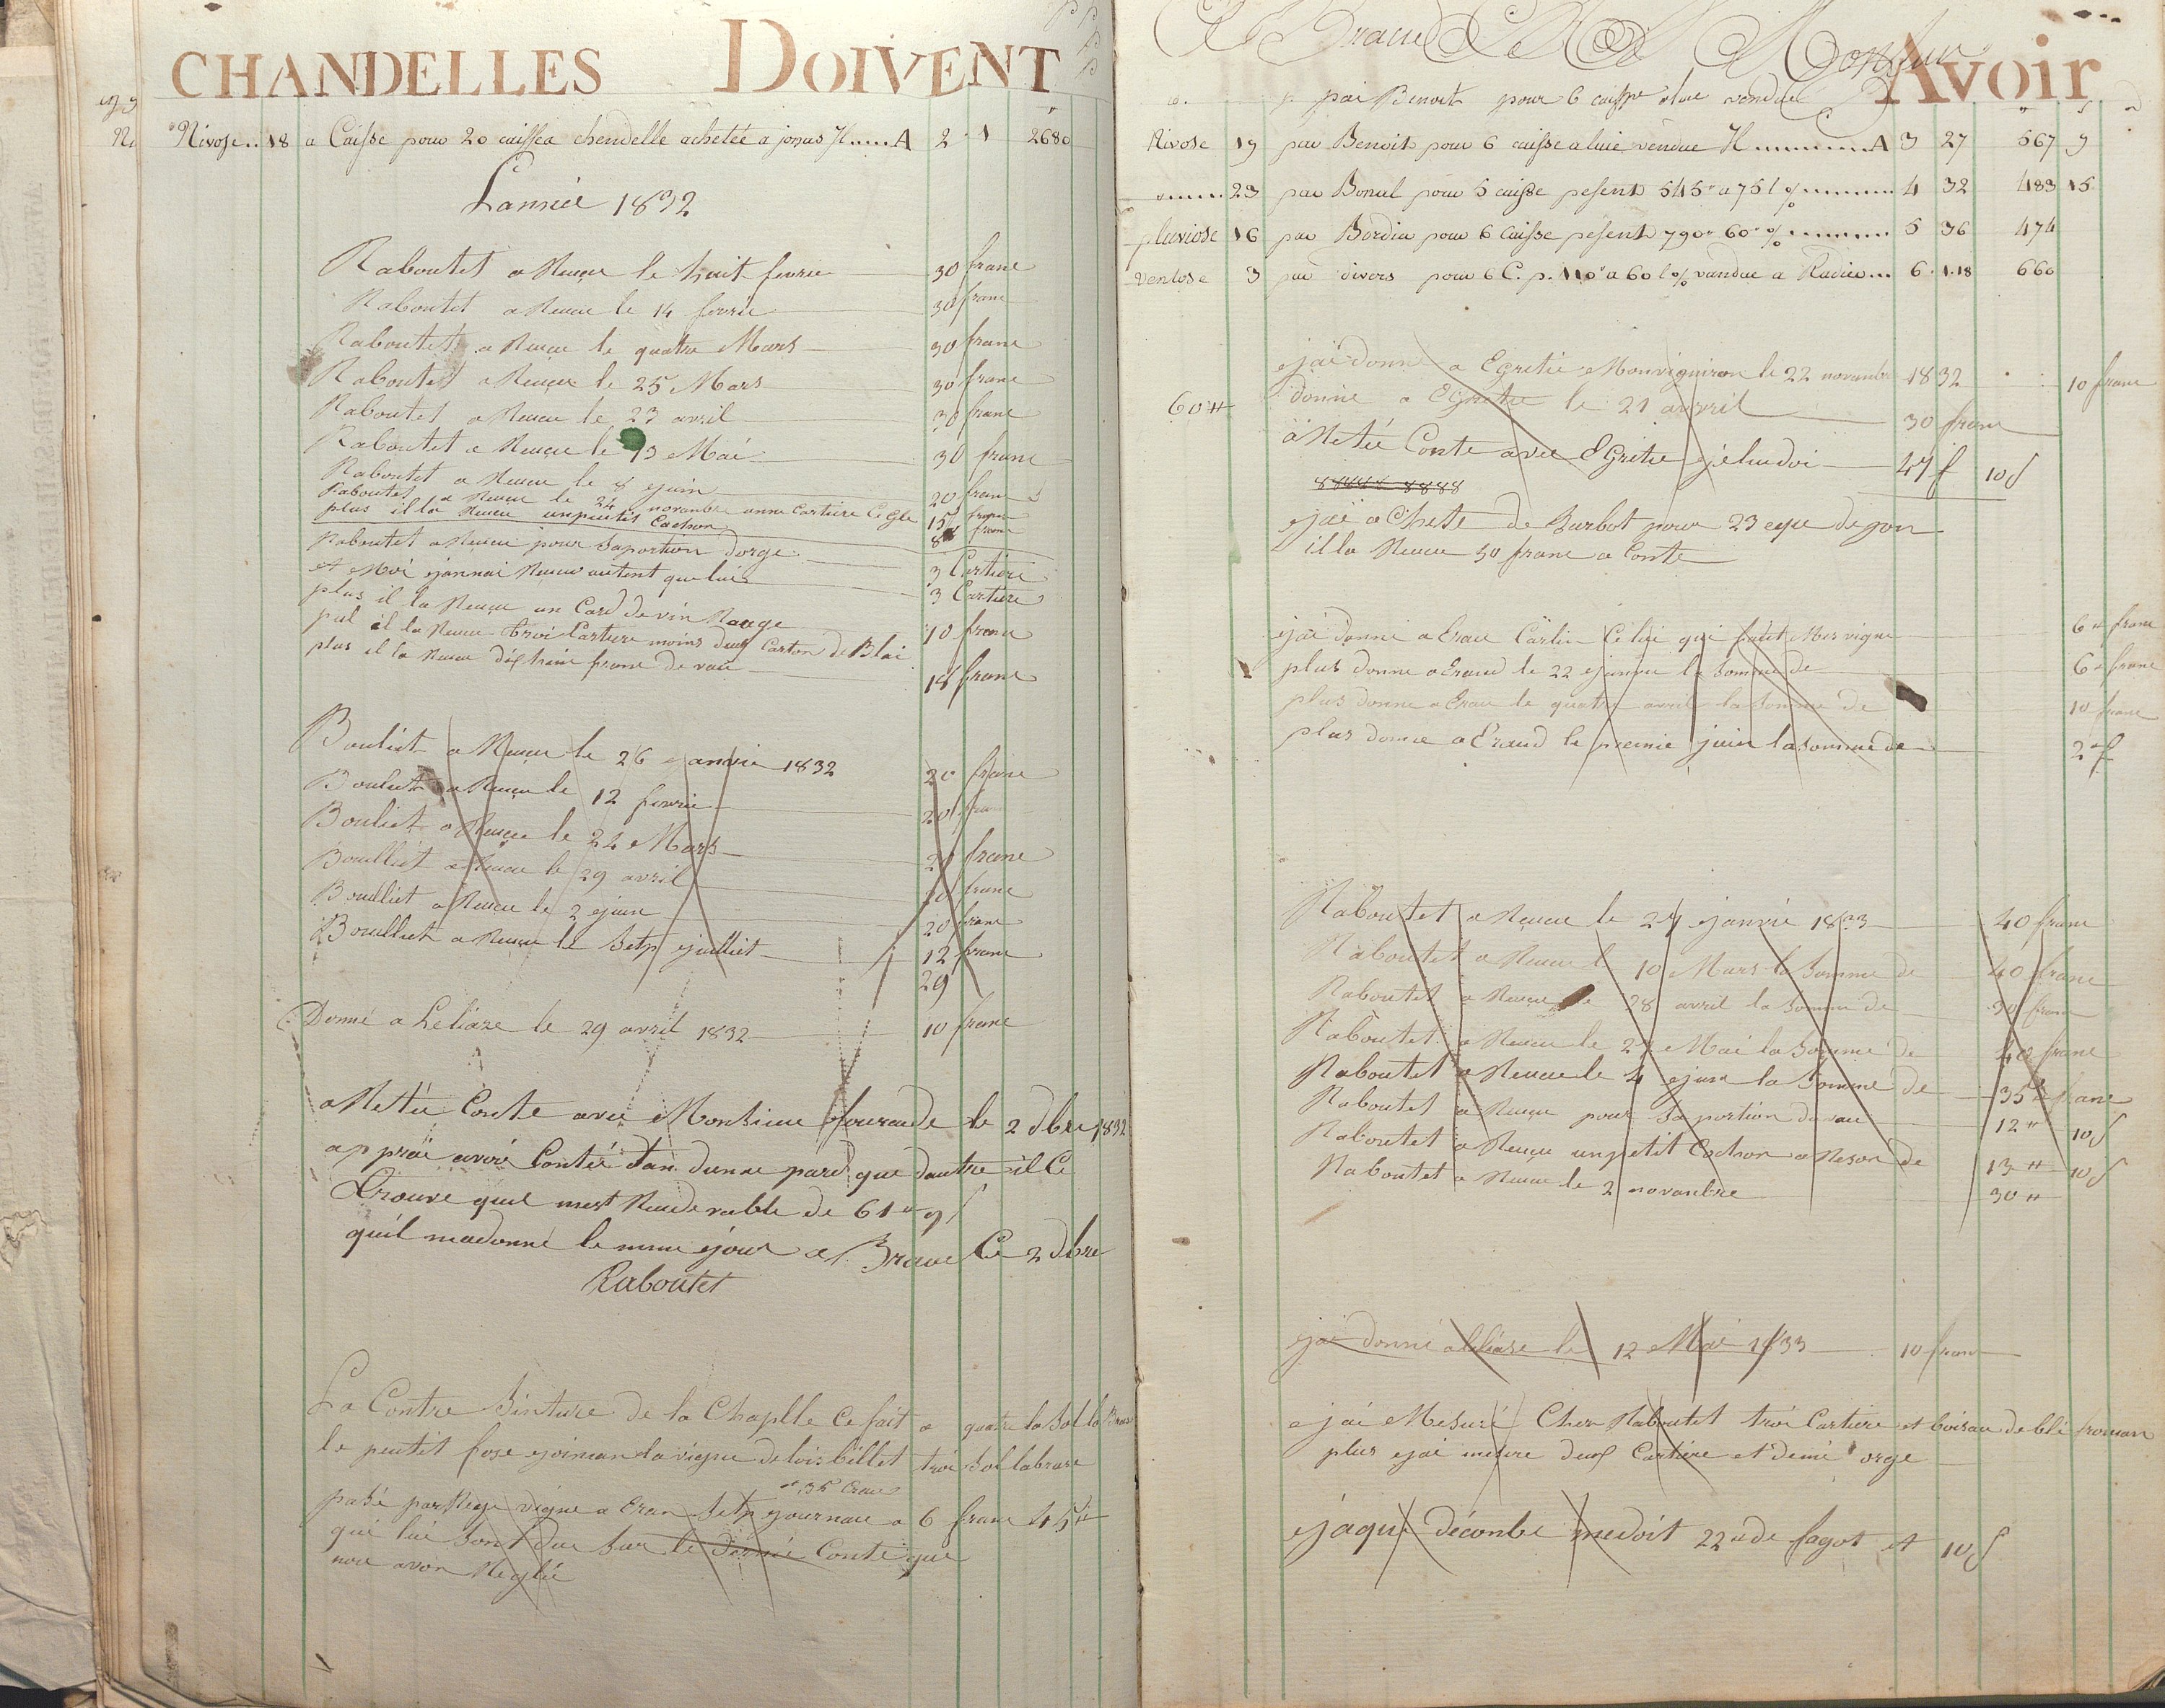 CHANDELLES DOIVENT
Nivose.. 18 a Caisse pour 20 caisses chendelle achetée a jonas H.....A 2 1 2680
L'année 1832
Raboutet a Reuçu le huit fevrie 30 franc
Raboutet a Reuçu le 14 fevrie 30 franc
Raboutet a Reuçu le quatre Mars 30 franc
Raboutet a Reuçu le 25 Mars 30 franc
Raboutet a Reuçu le 23 avril 30 franc
Raboutet a Reuçu le 13 Maé 30 franc
Raboutet a Reuçu le 8 ejuin 20 franc
Raboutet a Reuçu le 24 novanbre anne Cartiere 15 franc
plus illa Reuçu un peutit Cochon 8 franc
Raboutet a Reuçu pour Saportion dorge 3 Cartiere
et Moi ejannai Reuçu autent que lui 3 Cartiere
plus il la Reuçu un Card de vin Rouge 10 franc
pul il la Reuçu troi Carture moins deuf Carton de Blai
plus il la Reuçu franc de vau 18 franc
Bouliet a Reuçu le 26 ejanvie 1832 20 franc
Bouliet a Reuçu le 12 fevrie 20 franc
Bouliet a Reuçu le 22 Mars 20 franc
Boulliet a Reuçu le 29 avril franc
Boulliet a Reuçu le 2 ejuin 20 franc
Boulliet a Reuçu le Setp ejuilliet 12 franc
29
Donné a Leliaze le 29 avril 1832 10 franc
a Retée Conte avec Monsieur fouraude le 2 dbre 1832
ap präi avoir Contée dan dunne pard que dautre il Ce
Trouve quil mest Reuderable de 61# 9s
quil madonné le mme ejour a Braue Ce 2 dbre
Raboutet
La Contre Sinture de la Chaplle Ce fait a quatre la Sol la Brase
le peutit fose ejoinan la vigne de loisbillet troi Sol labrase
et 35 Erau
pasé par Rege vigne a Eran Setp ejournau a 6 franc 45#
qui lui Sont due Sur le dernié Conte que
nou avon Reglée
Braue Monsieur
Avoir
par Benoit pour 6 caisse a lue vendue
Nivose 19 par Benoit pour 6 caisse a luie vendue H..........A 3 27 567 9
........23 par Bonul pour 5 caisse pesent 545# a 75 l %........ 4 32 483 15
pluviose 16 par Bordiu pour 6 Caisse pesent 790# 60# %........ 5 36 474
Ventose 3 par divers pour 6 C. p. 110# a 60 l % vandue a Radiu... 6 1.18 660
ejai donné a Egretié Monvigniron le 22 novanbre 1832 10 franc
60# donné a Egretie le 21 avvril 30 franc
a Retée Conte avec Egretie ejé lui doi 47 f 10 s
88888 8888
ejai a Cheté de Burbot pour 23 eque de jon
illa Reuçu 30 franc a Conte
ejai donné a Erau Carlin Celui qui fait Mes vigne 6# franc
plus donné a Eraud le 22 ejanvie la Somme de 6# franc
plus donné a Erau le quatre avril la Somme de 10 franc
plus donné a Eraud le premié juin la Somme de 2# f
Raboutet a Reuçu le 27 ejanvié 1833 40 franc
Raboutet a Reuçu le 10 Mars la Somme de 40 franc
Raboutet a Reuçu le 28 avril la Somme de 30 franc
Raboutet a Reuçu le 27 Mai la Somme de 40 franc
Raboutet a Reuçu le 4 ejuin la Somme de 35# franc
Raboutet a Reuçu pour Sa portion de vau 12# 10 s
Raboutet a Reuçu un petit Cochon a Reson de 13# 10 s
Raboutet a Reuçu le 2 novanbre 30#
ejai donné a leliase le 12 Mai 1833 10 franc
ejai Mesuré Cher Raboutet troi Cartiere et boisau de blé froman
plus ejai mesuré deuf Cartiére et demi orge
ejaque décombe me doit 22# de fagot et 10 s